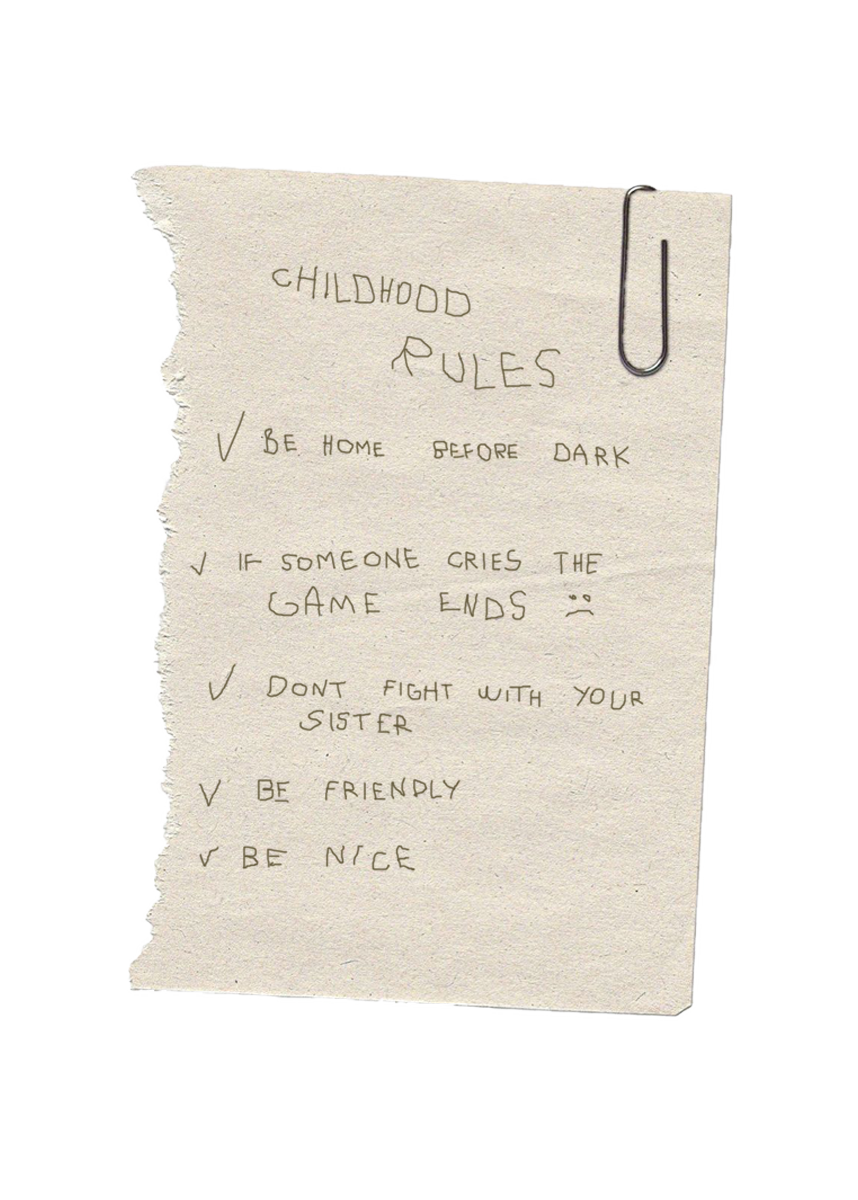 CHILDHOOD
RULES
✓ BE HOME BEFORE DARK
✓ IF SOMEONE CRIES THE
GAME ENDS :(
✓ DONT FIGHT WITH YOUR
SISTER
✓ BE FRIENDLY
✓ BE NICE